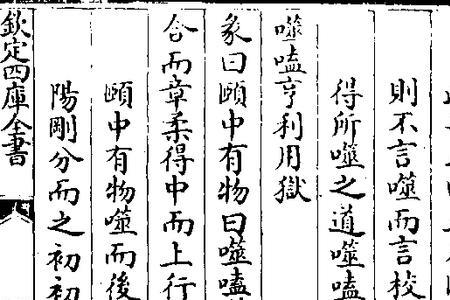 則不言噬而言校
得所噬之道噬嗑
噬嗑亨利用獄
彖曰頤中有物曰噬嗑
合而章柔得中而上行
頤中有物噬而後
陽剛分而之初初
欽定四庫全書